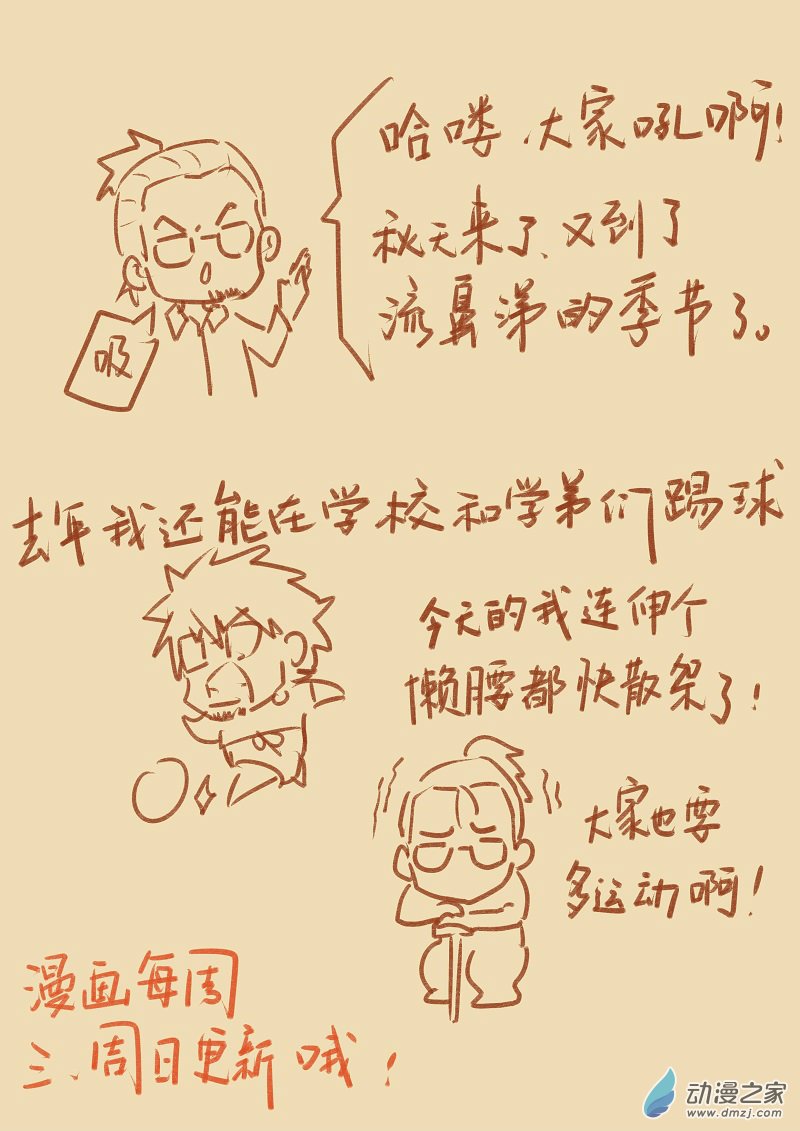 哈喽、大家吼啊!
秋天来了、又到了
流鼻涕的季节了。
吸
去年我还能在学校和学弟们踢球
今天的我连伸个
懒腰都快散架了!
大家也要
多运动啊!
漫画每周
三、周日更新哦!
动漫之家
www.dmzj.com